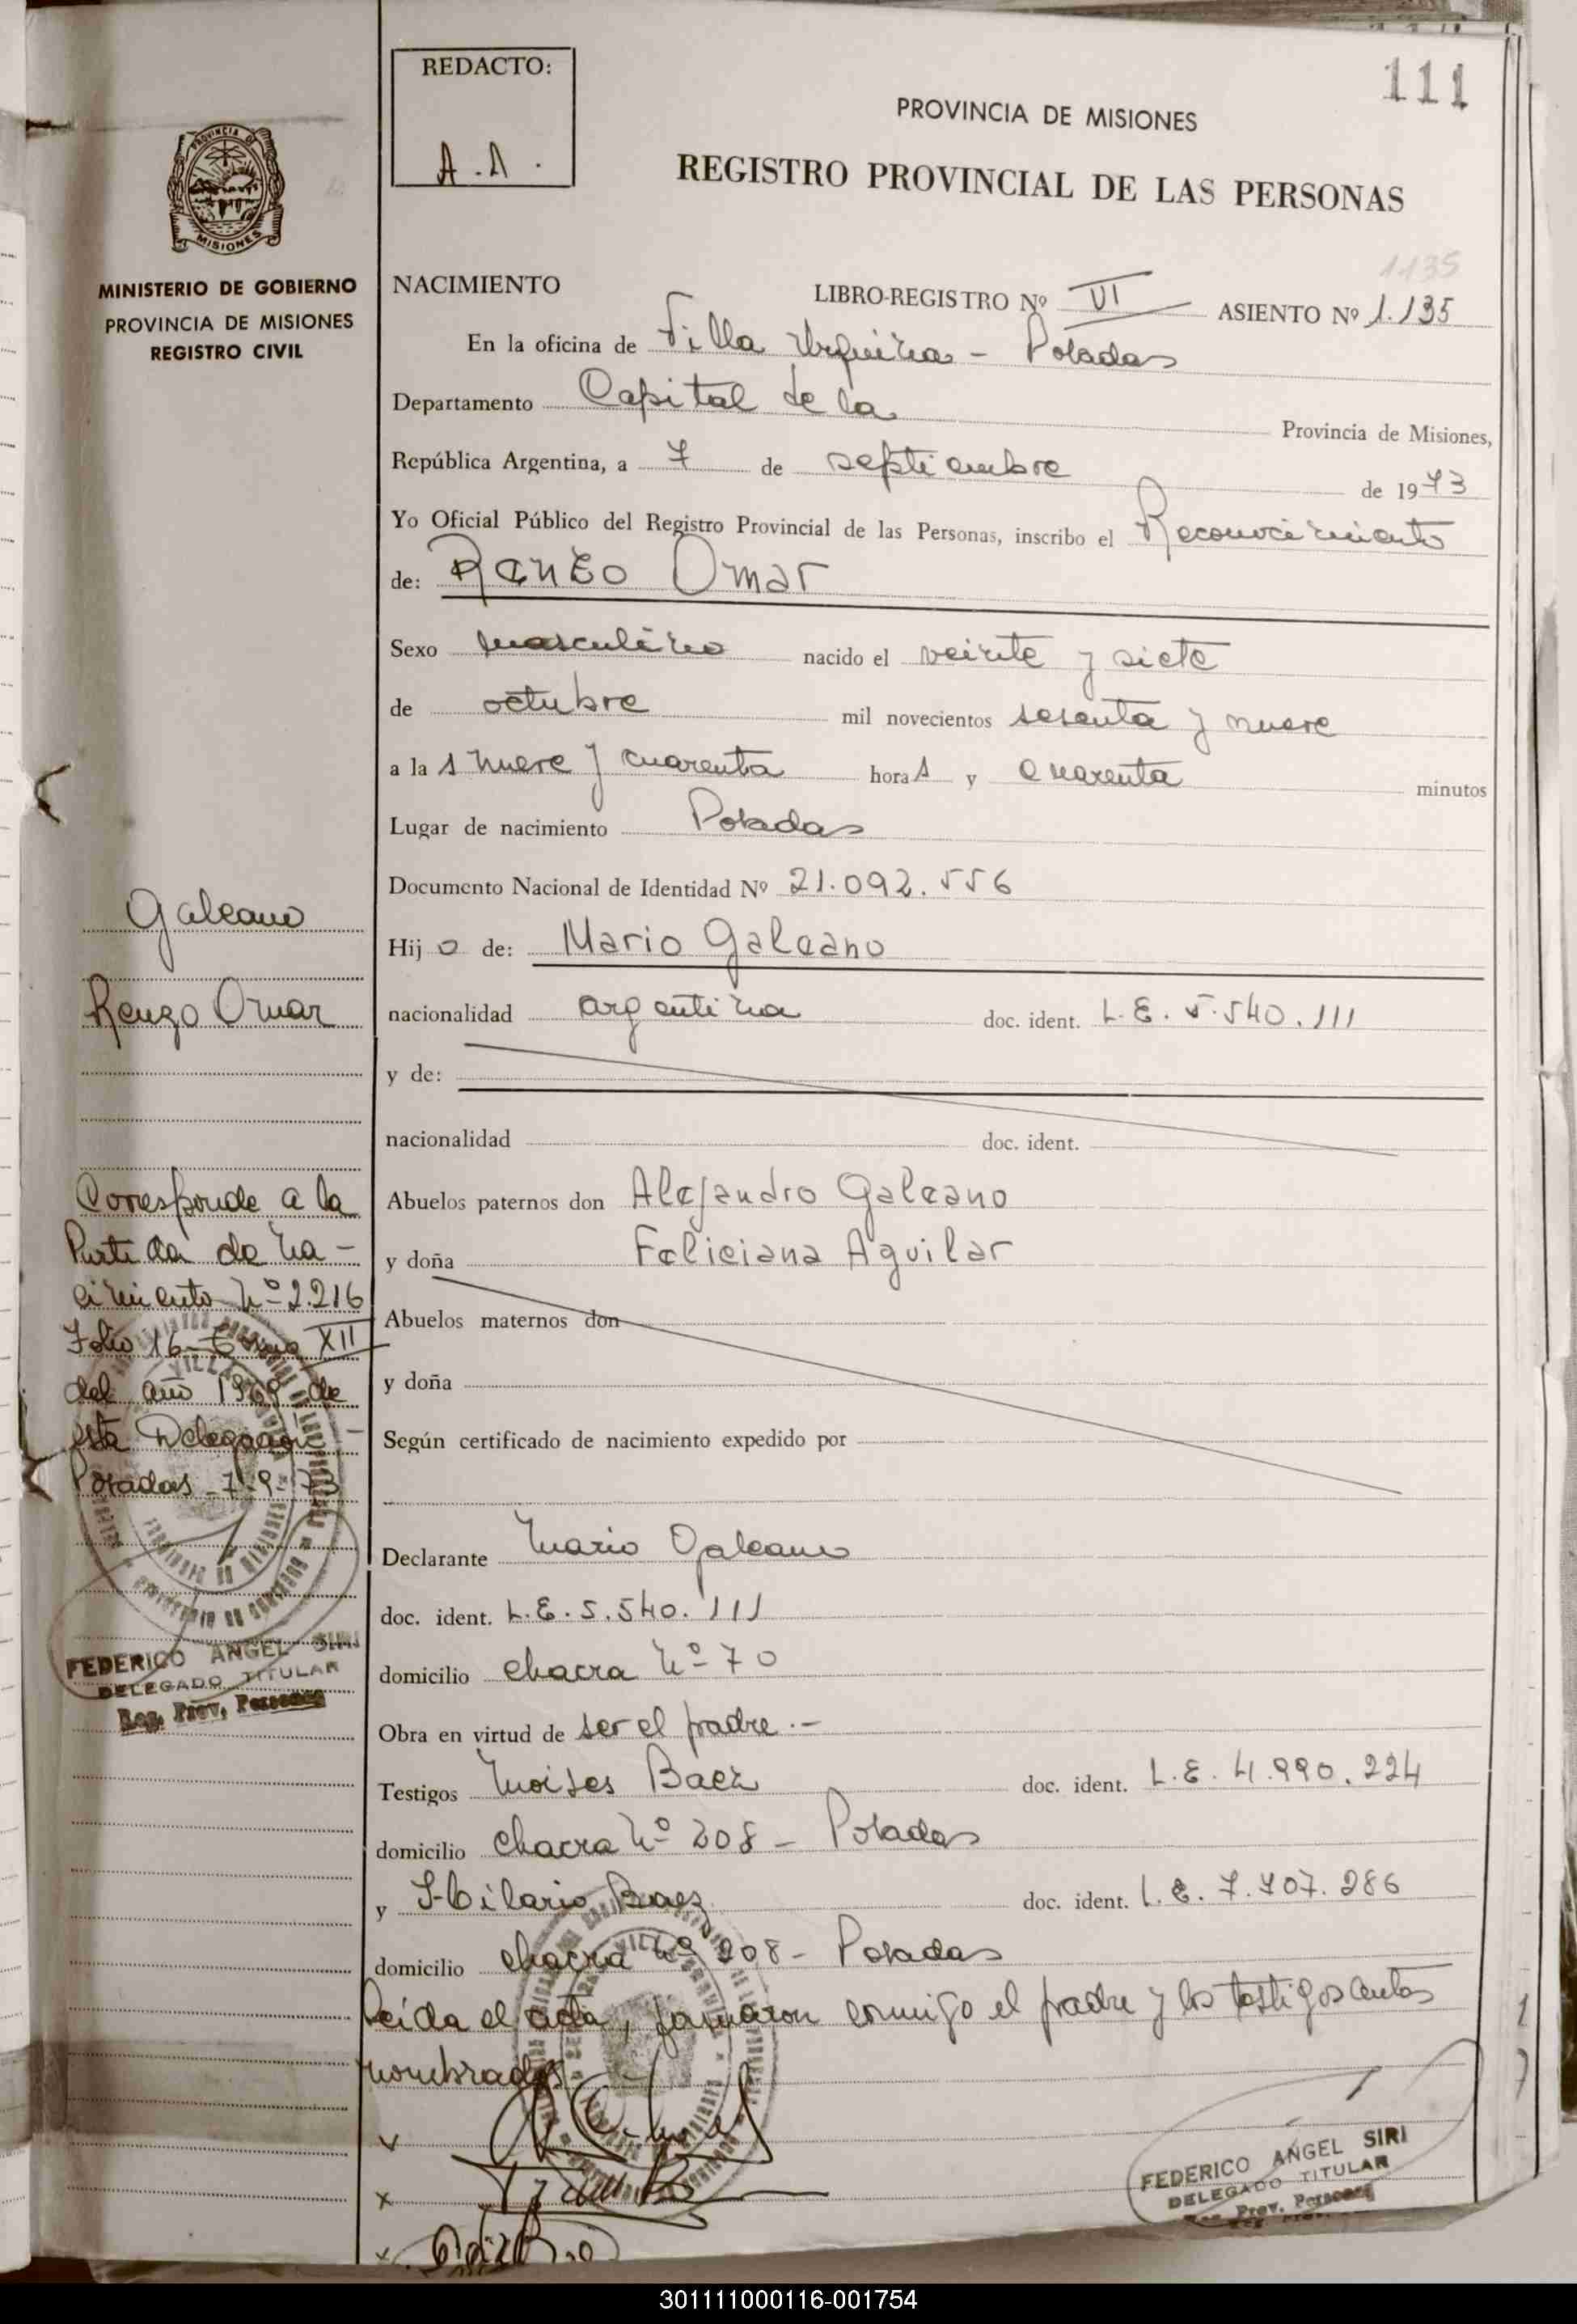 111
REDACTO:
A.A.
PROVINCIA DE MISIONES
REGISTRO PROVINCIAL DE LAS PERSONAS
PROVINCIA DE
MISIONES
MINISTERIO DE GOBIERNO
PROVINCIA DE MISIONES
REGISTRO CIVIL
1135
NACIMIENTO LIBRO-REGISTRO Nº VI ASIENTO Nº 1.135
En la oficina de Villa Urquiza - Posadas
Departamento Capital de la Provincia de Misiones,
República Argentina, a 7 de septiembre de 1973
Yo Oficial Público del Registro Provincial de las Personas, inscribo el Reconocimiento
de: Renzo Omar
Sexo masculino nacido el veinte y siete
de octubre mil novecientos sesenta y nueve
a las nueve y cuarenta horas y cuarenta minutos
Lugar de nacimiento Posadas
Documento Nacional de Identidad Nº 21.092.556
Hijo de: Mario Galeano
nacionalidad argentina doc. ident. L.E. 5.540.111
y de:
nacionalidad doc. ident.
Abuelos paternos don Alejandro Galeano
y doña Feliciana Aguilar
Abuelos maternos don
y doña
Según certificado de nacimiento expedido por
Declarante Mario Galeano
doc. ident. L.E. 5.540.111
domicilio chacra Nº 70
Obra en virtud de ser el padre.-
Testigos Moises Baez doc. ident. L.E. 4.990.224
domicilio chacra Nº 208 - Posadas
y Hilario Baez doc. ident. L.E. 7.707.286
domicilio chacra Nº 208 - Posadas
Leida el acta, firmaron conmigo el padre y los testigos antes
nombrados
Galeano
Renzo Omar
Corresponde a la
Partida de Na-
cimiento Nº 2.216
Folio 16 - Tomo XII
del año 1969 de
esta Delegación -
Posadas - 7-9-73
FEDERICO ANGEL SIRI
DELEGADO TITULAR
Reg. Prov. Personas
FEDERICO ANGEL SIRI
DELEGADO TITULAR
Reg. Prov. Personas
301111000116-001754